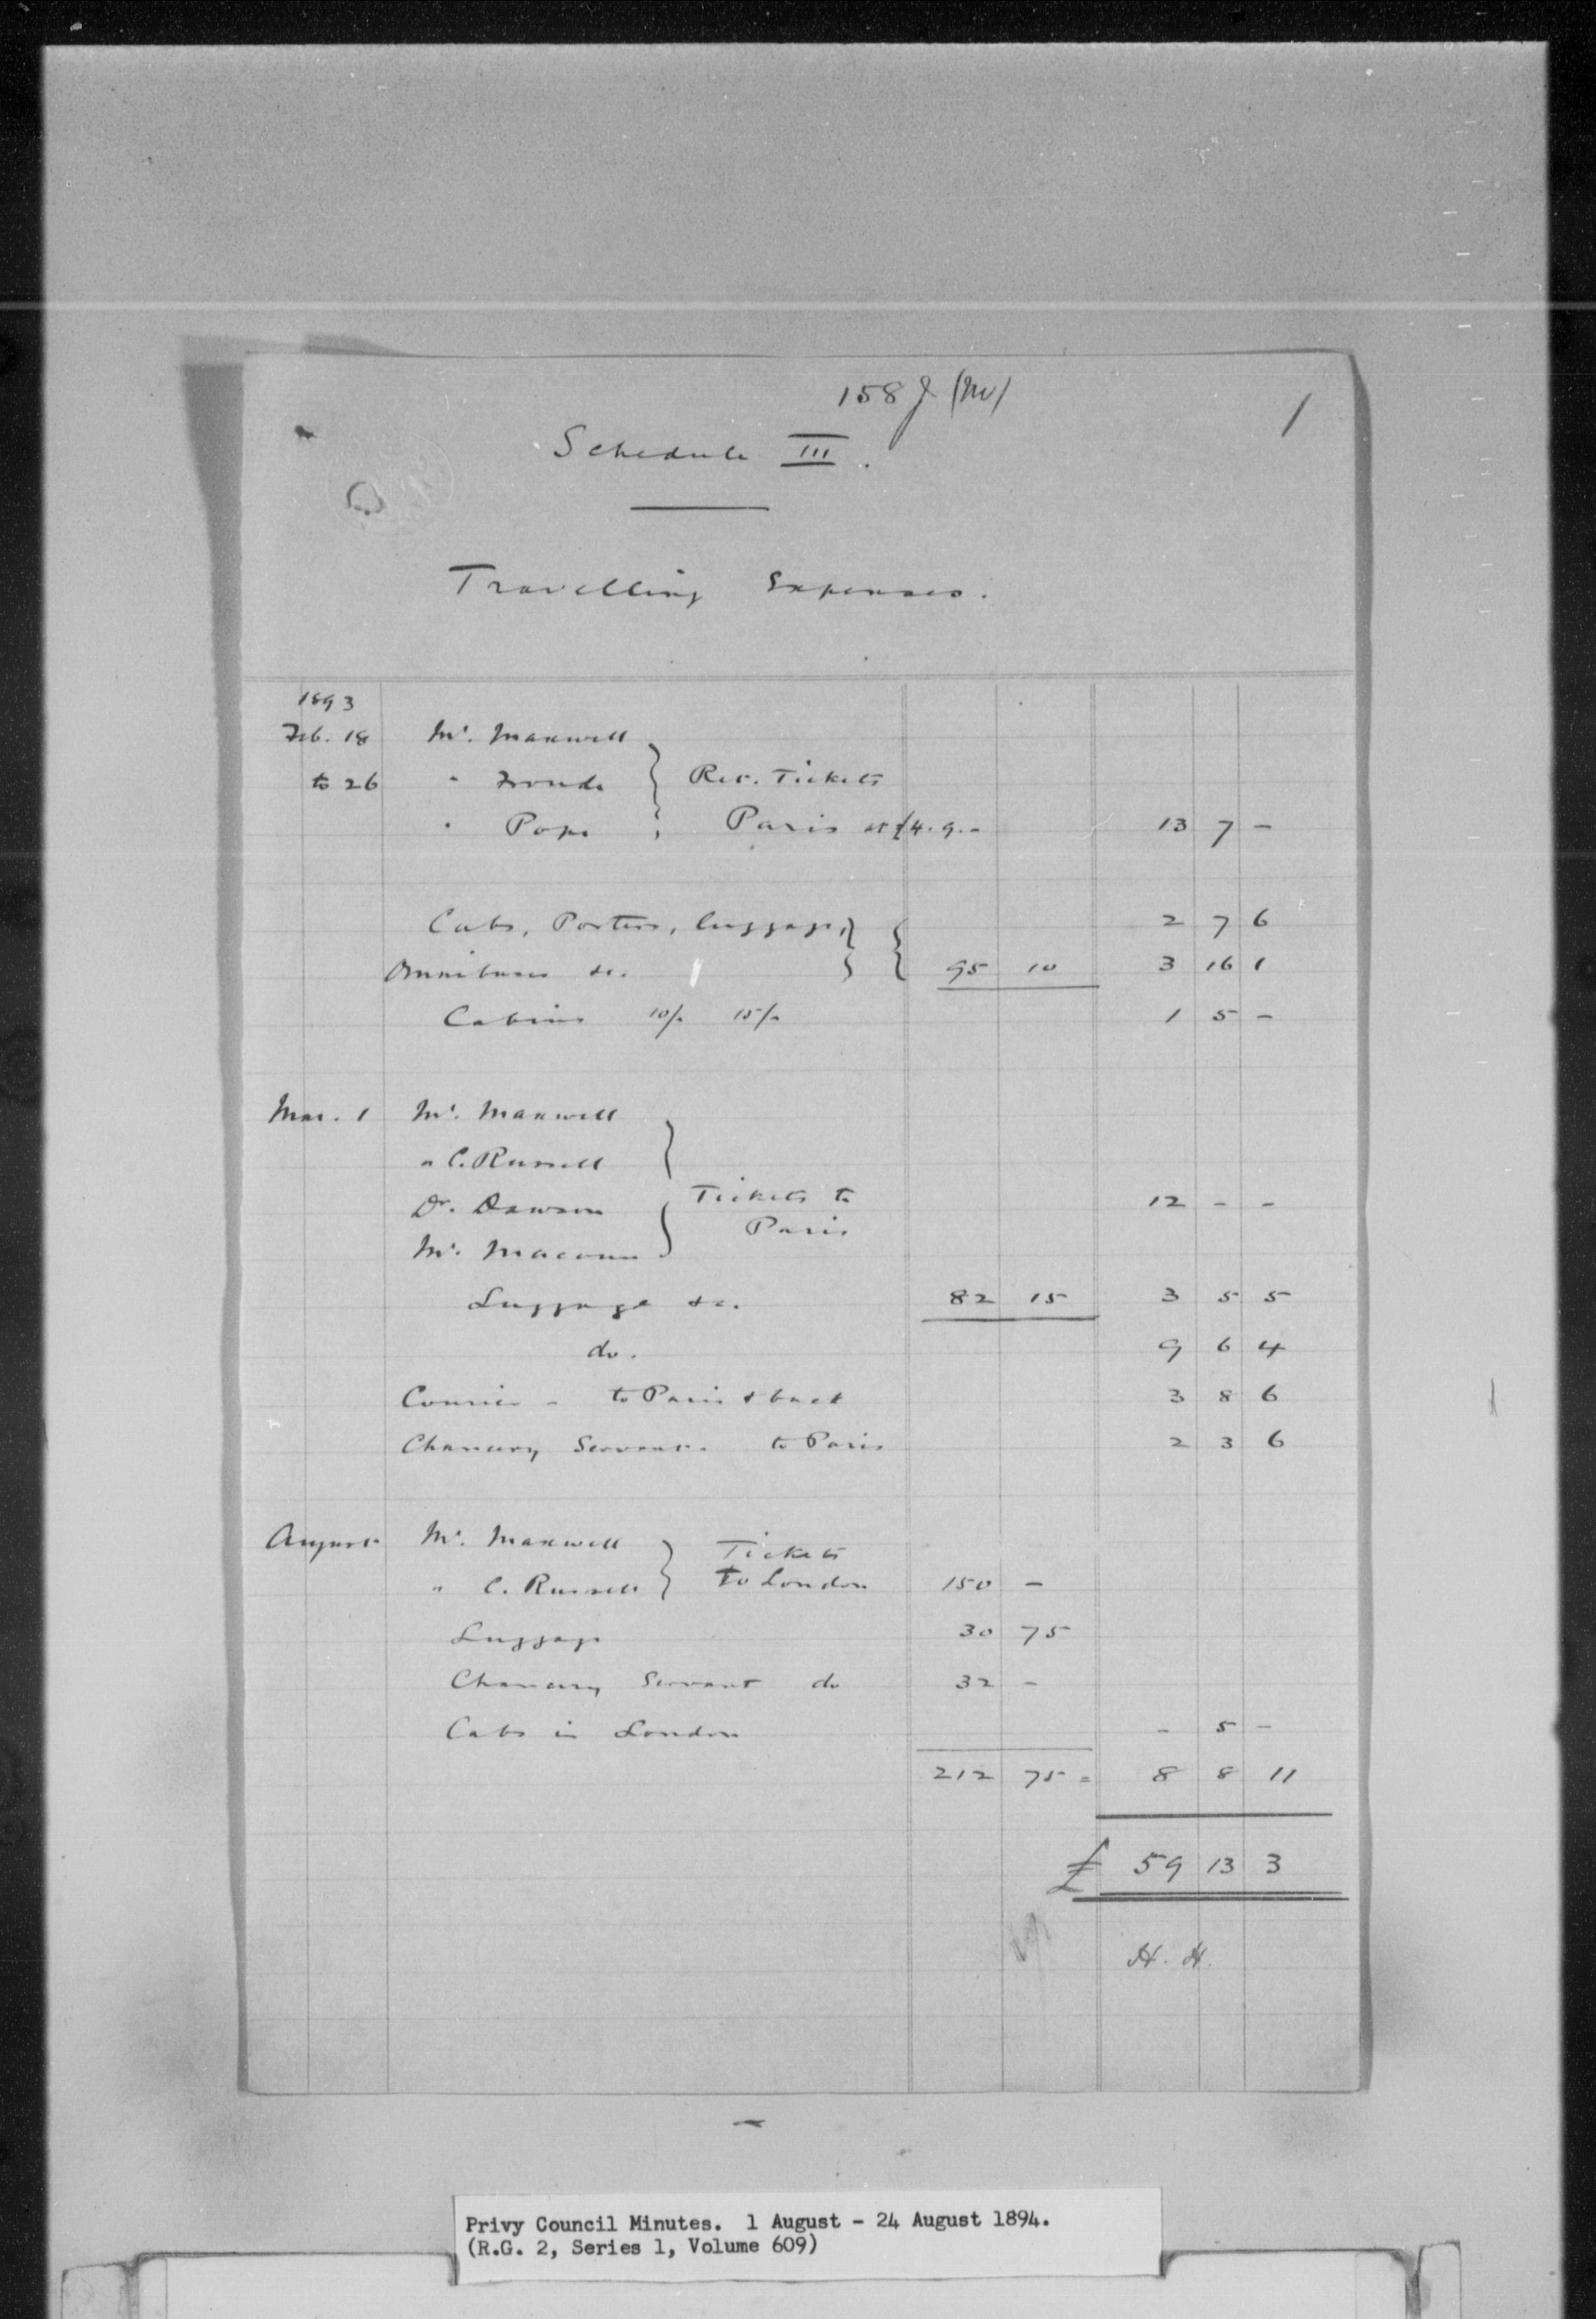 158 J (M)
1
Schedule III.
Travelling Expenses.
1893
Feb. 18 Mr. Maxwell
to 26 " Froude } Ret. Tickets
" Pope } Paris at £4.9.- 13 7 -
Cabs, Porters, luggage, } { 2 7 6
Omnibuses &c. } { 95 10 3 16 1
Cabins 10/- 15/- 1 5 -
Mar. 1 Mr. Maxwell
" C. Russell
Dr. Dawson } Tickets to 12 - -
Mr. Macoun } Paris
Luggage &c. 82 15 3 5 5
do. 9 6 4
Courier - to Paris & back 3 8 6
Chancery Servant. to Paris 2 3 6
August Mr. Maxwell } Tickets
" C. Russell } to London 150 -
Luggage 30 75
Chancery Servant do 32 -
Cabs in London - 5 -
212 75 = 8 8 11
£ 59 13 3
H. H.
Privy Council Minutes. 1 August - 24 August 1894.
(R.G. 2, Series 1, Volume 609)